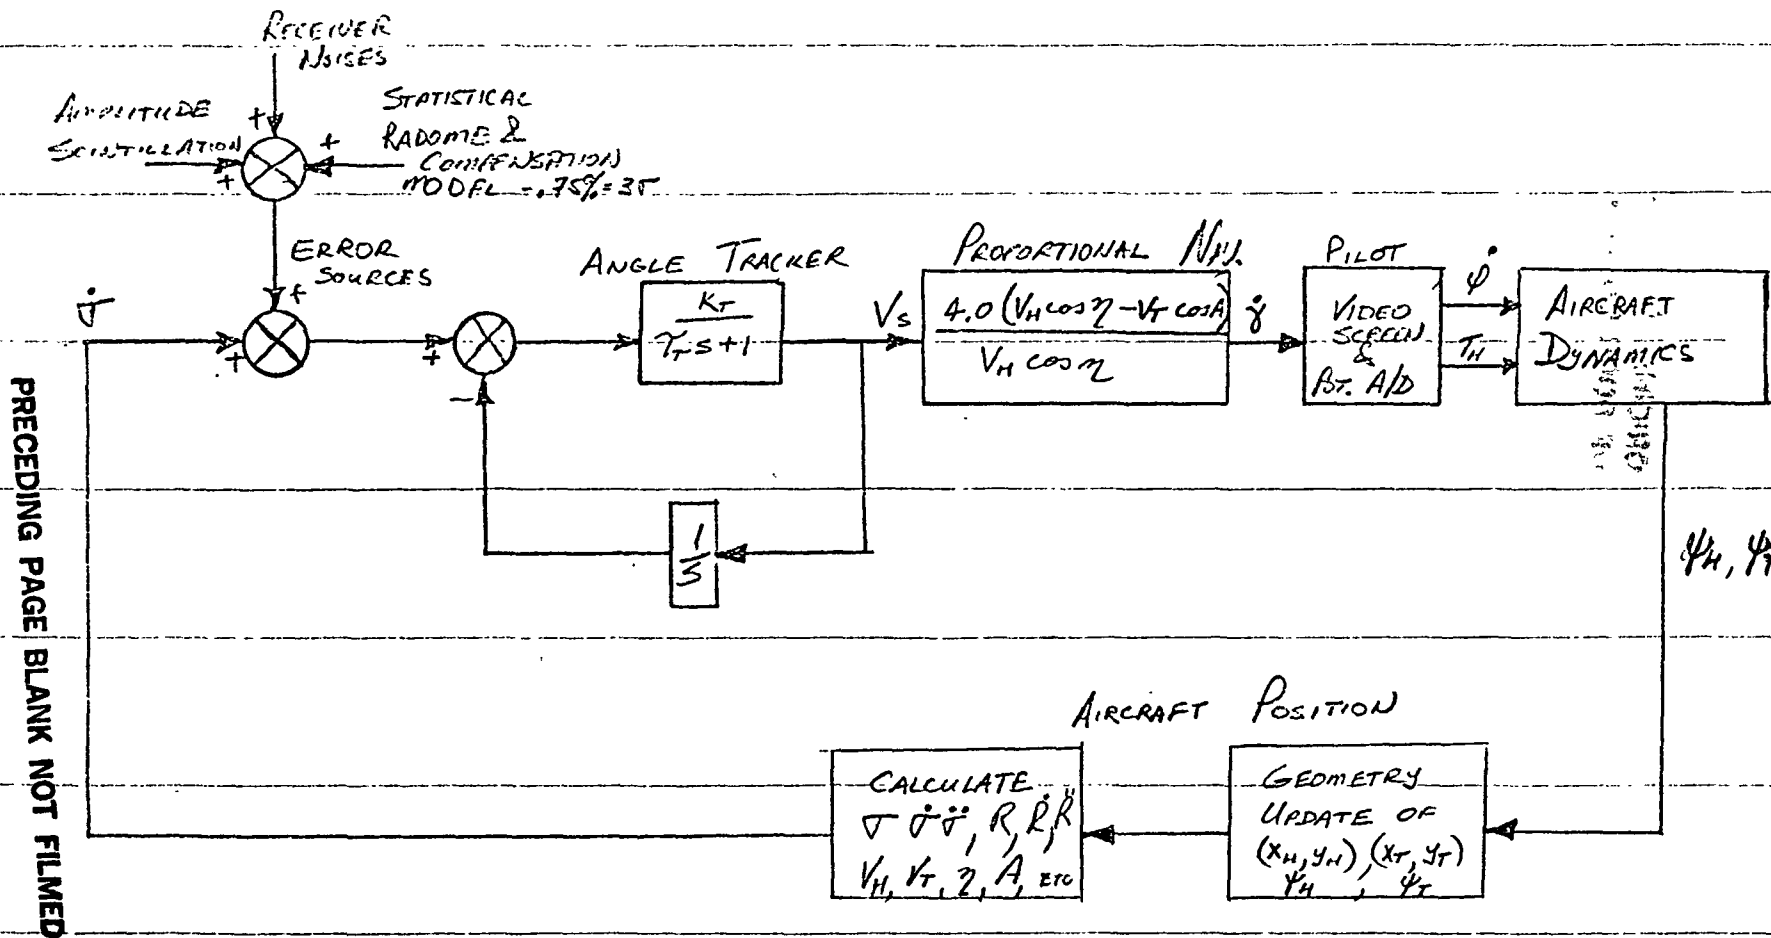 RECEIVER
NOISES
AMPLITUDE
SCINTILLATION
+
+
+
STATISTICAL
RADOME &
COMPENSATION
MODEL - .75% = 3σ
ERROR
SOURCES
σ̇
+
+
+
−
ANGLE TRACKER
K_T
τ_T s + 1
V_S
PROPORTIONAL NAV.
4.0 (V_H cos η − V_T cos A)
V_H cos η
γ̇
PILOT
VIDEO
SCREEN
&
PBT. A/D
φ̇
T_H
AIRCRAFT
DYNAMICS
1
S
ψ_H, ψ_T
AIRCRAFT POSITION
CALCULATE
σ σ̇ σ̈, R, Ṙ, R̈
V_H, V_T, η, A, ETC
GEOMETRY
UPDATE OF
(x_H, y_H), (x_T, y_T)
ψ_H , ψ_T
PRECEDING PAGE BLANK NOT FILMED